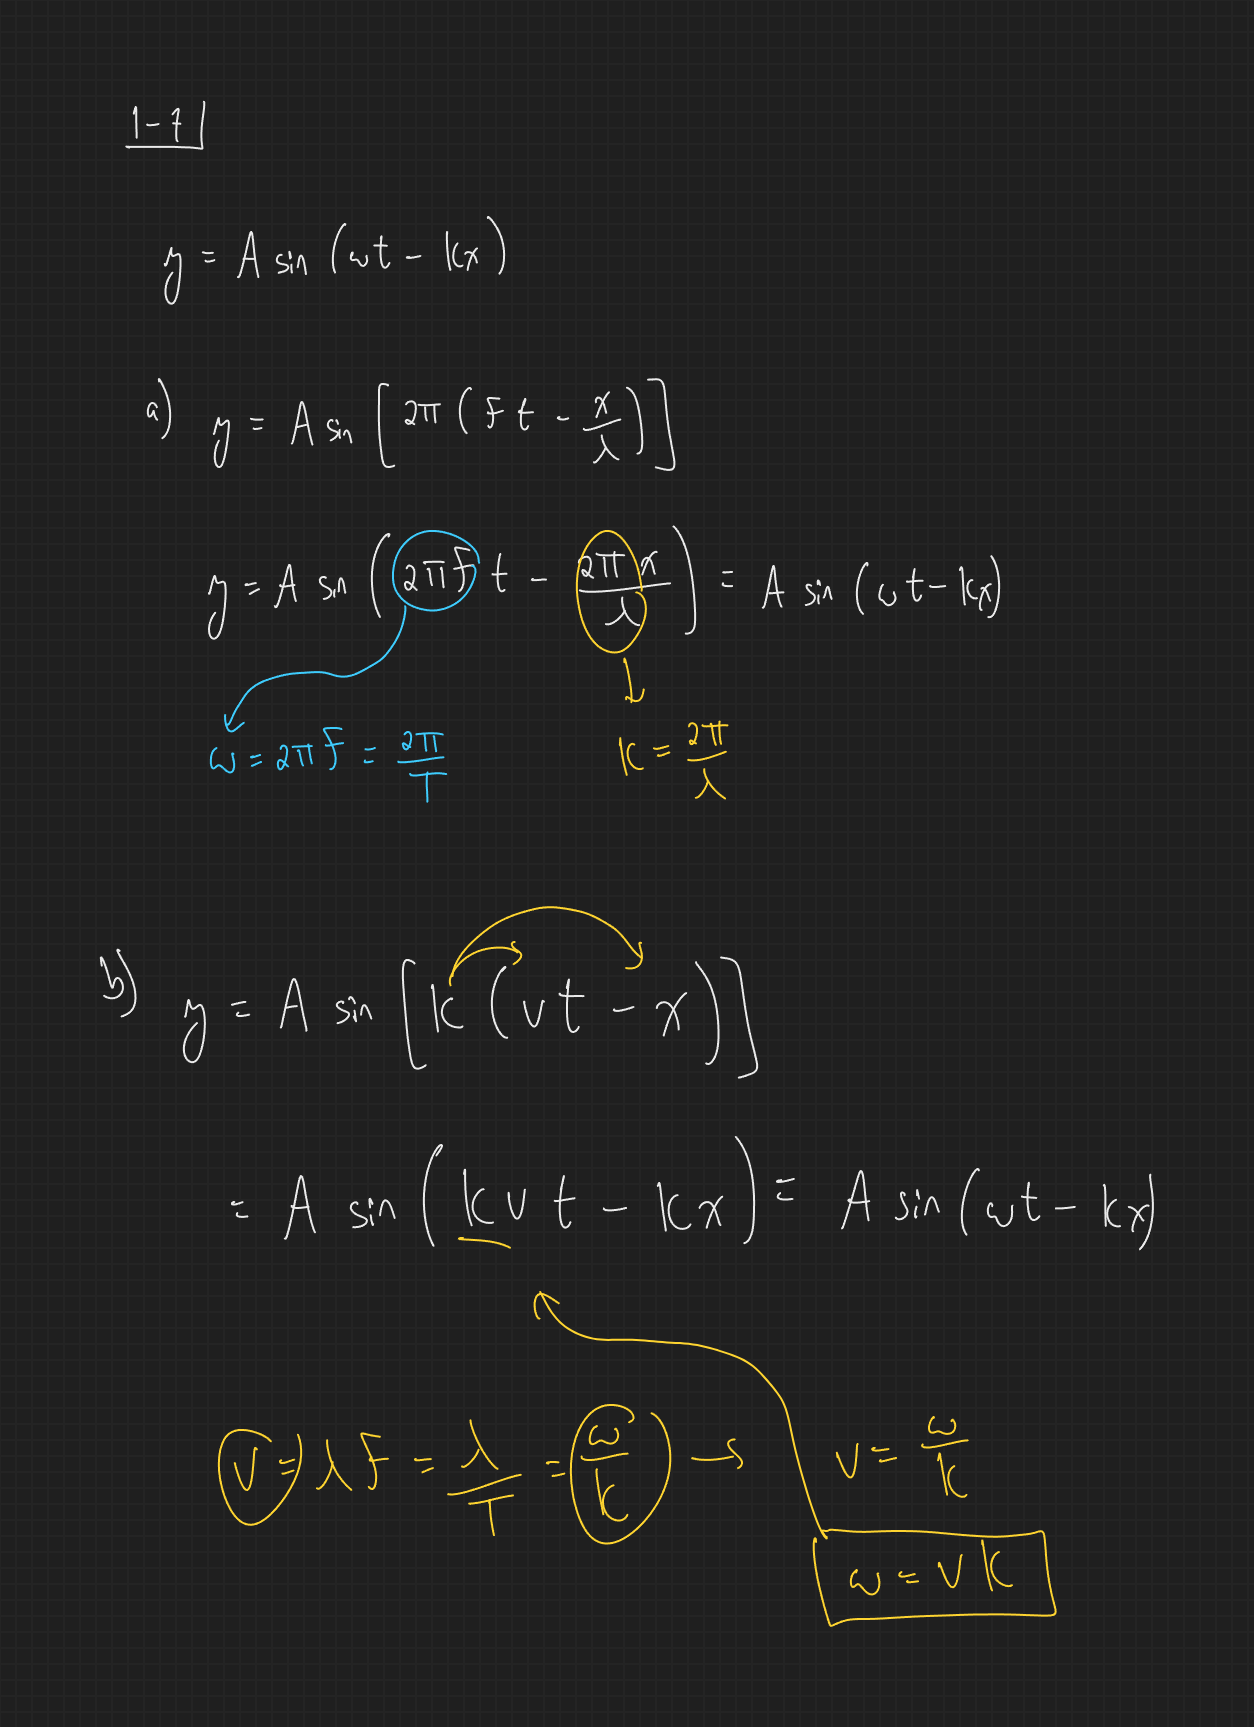 1-7
y = A sin (ωt - kx)
a) y = A sin [2π (ft - x/λ)]
y = A sin (2πf t - 2πx/λ) = A sin (ωt - kx)
ω = 2πf = 2π/T k = 2π/λ
b) y = A sin [k (vt - x)]
= A sin (kvt - kx) = A sin (ωt - kx)
v = λf = λ/T = ω/k → v = ω/k
ω = vk